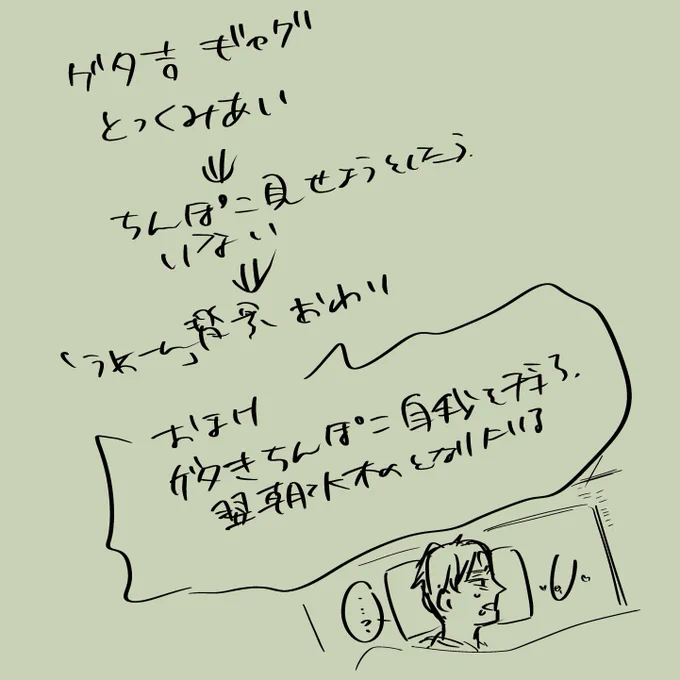 ゲタ吉 ギャグ
とっくみあい
ちんぽこ見せようとしたら
いない
背景 おわり
おまけ
ゲタきちんぽこ自我を
翌朝水木のとなりにいる
…?